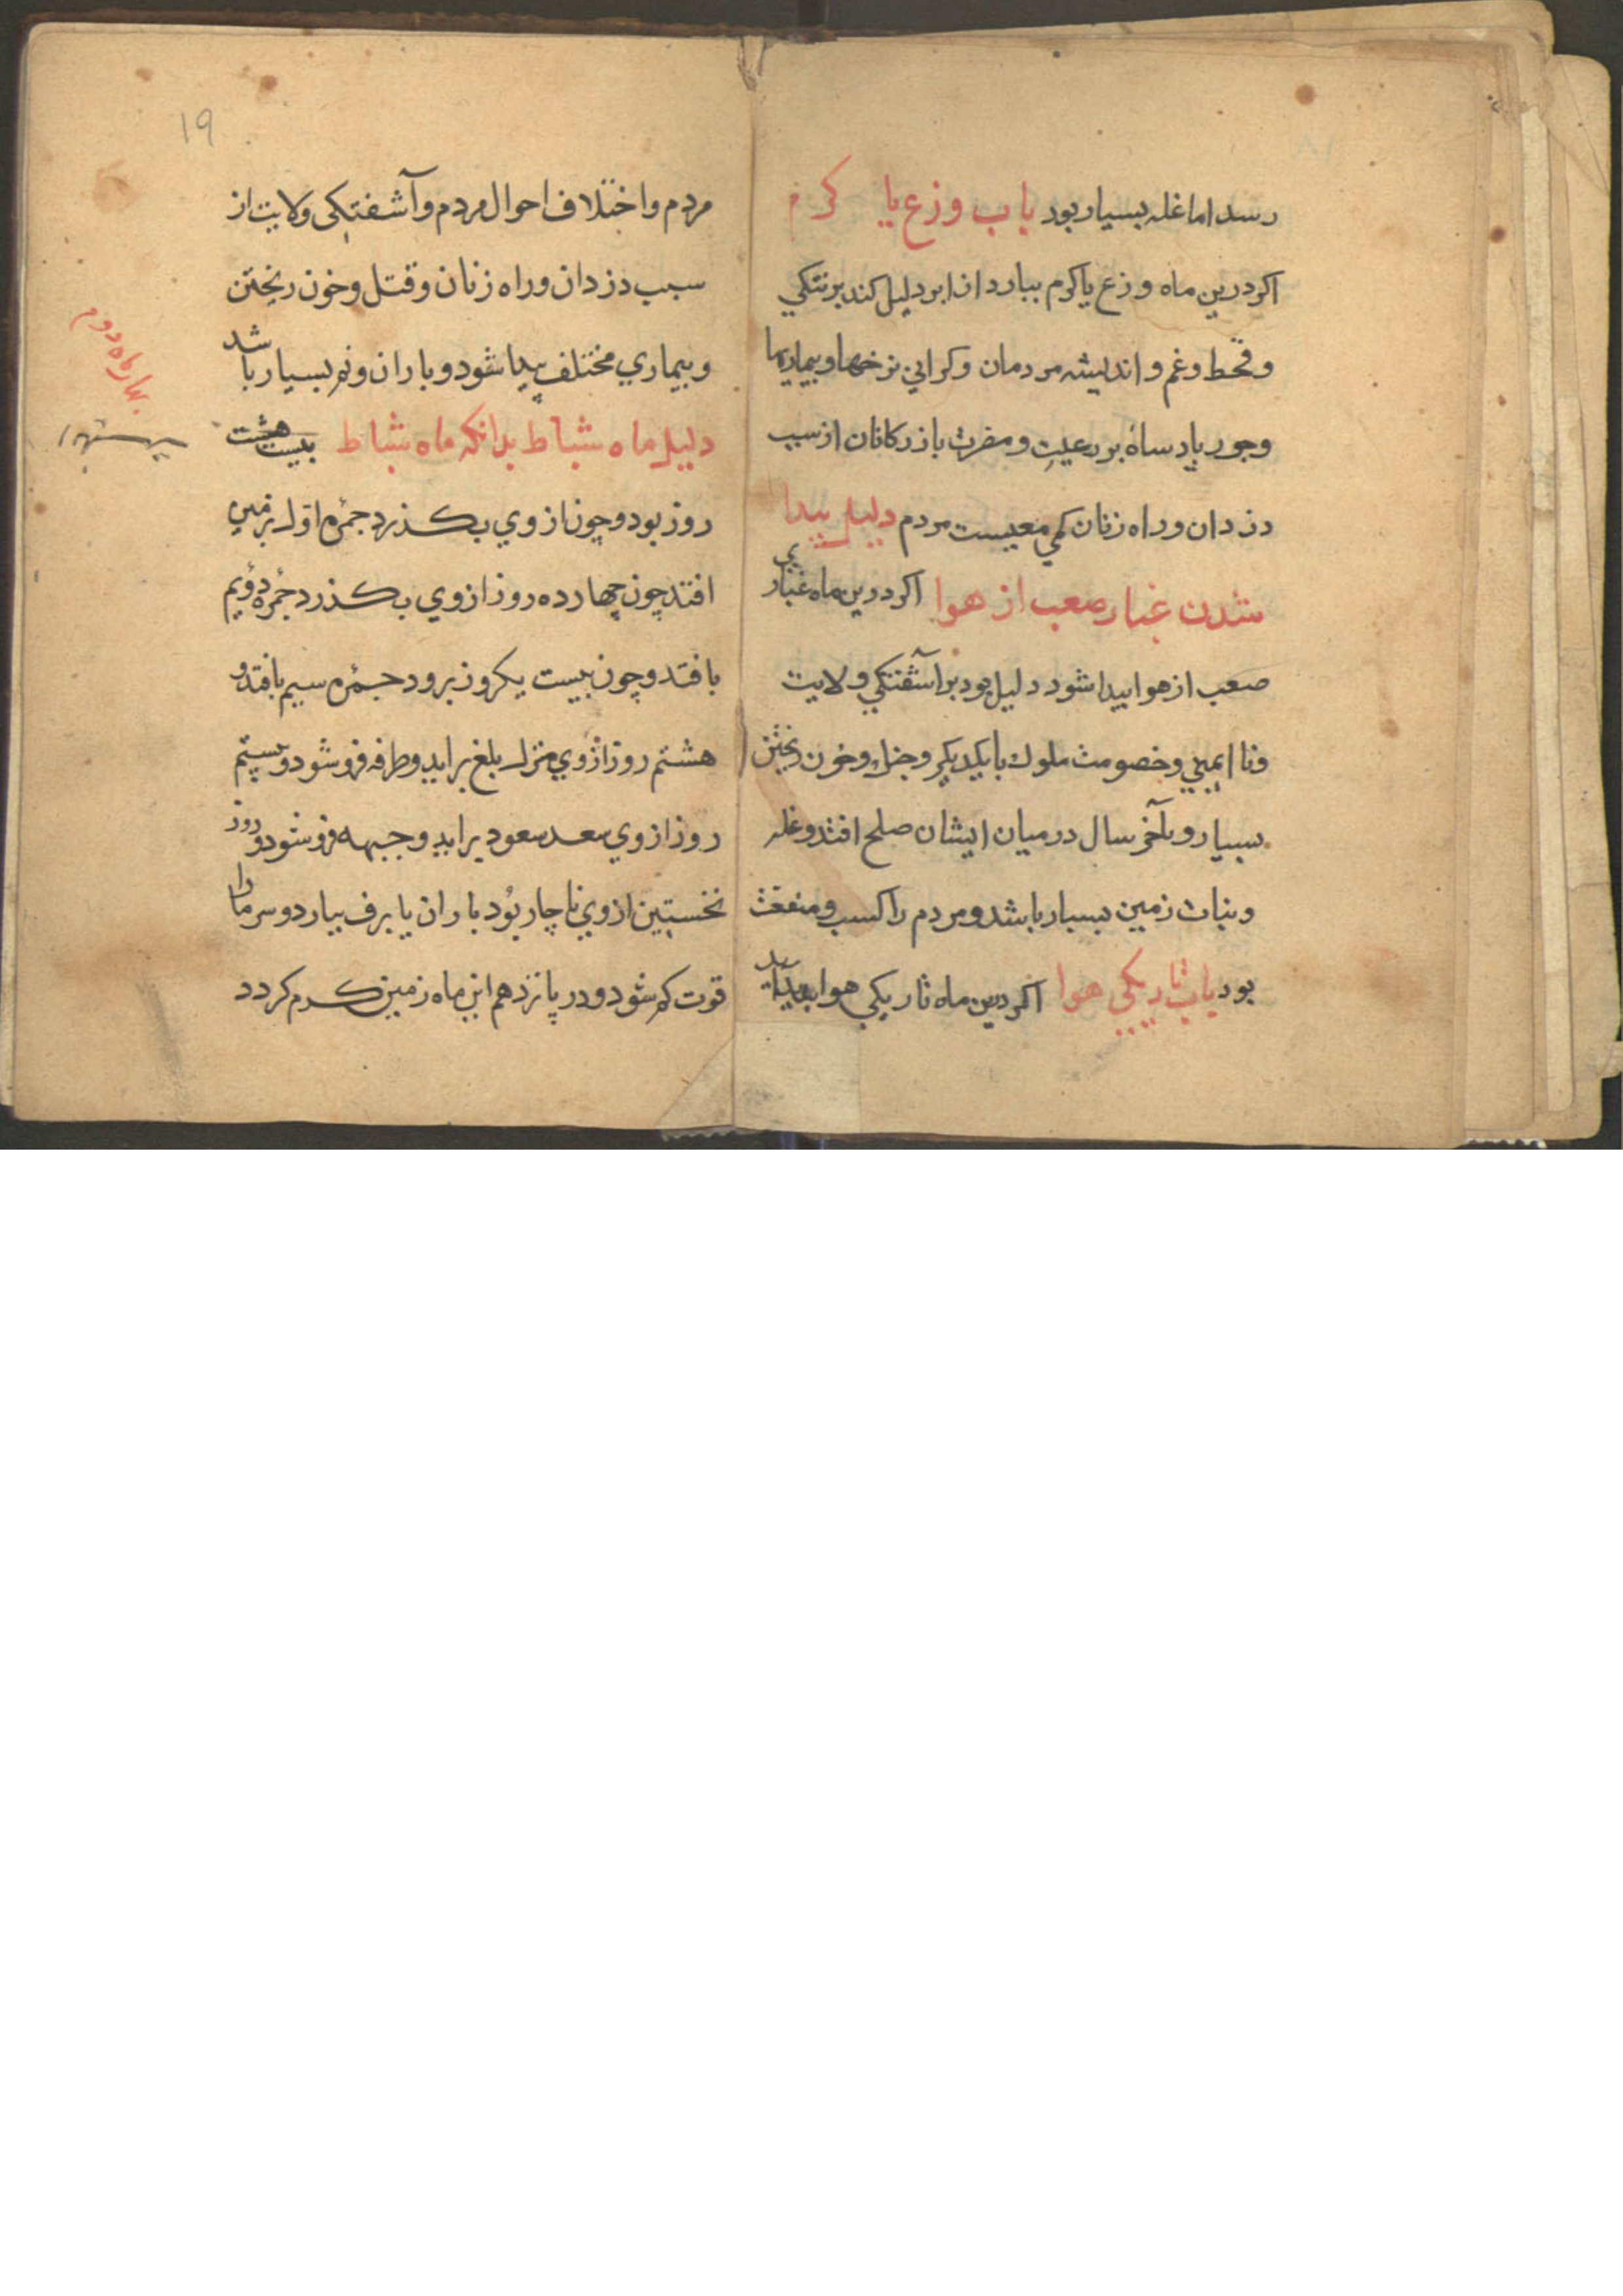 رسد اما غله بسیار بود باب وزع یا کرم
اکر درین ماه وزع یا کرم ببارد از ابر دلیل کند بر تنکي
و قحط و غم و اندیشه مردمان و کراني نرخها و بیماریها
و جور پادساه بر رعیت و مضرت بازرکانان از سبب
دزدان و راه زنان کمي معیست مردم دلیل پیدا
شدن غبار صعب از هوا اکر درین ماه غباري
صعب از هوا پیدا شود دلیل بود بر آشفتکي ولایت
و نا ایمني و خصومت ملوك با یکدیکر و جنك و خون ریختن
بسیار و بآخر سال در میان ایشان صلح افتد و غله
و نبات زمین بسیار باشد و مردم را کسب و منفعت
بود باب تاریکي هوا اکر درین ماه تاریکي هوا پیدا آید
19
مردم و اختلاف احوال مردم و آشفتکی ولایت از
سبب دزدان و راه زنان و قتل و خون ریختن
و بیماري مختلف پیدا شود و باران و نم بسیار باشد
دلیل ماه شباط بدانکه ماه شباط بیست هشت
روز بود و چون از وي بکذرد جمرۀ اول بر زمین
افتد چون چهارده روز از وي بکذرد جمرۀ دؤیم
بافتد و چون بیست یکروز برود جمرۀ سیم بافتد و
هشتم روز از وي منزل بلغ براید و طرفه فرو شود و بیستم
روز از وي سعد سعود براید و جبهه فرو شود و روز
نخستین از وي ناچار بُود باران یا برف ببارد و سرما را
قوت کم شود و در پانزدهم این ماه زمین کرم کردد
بهار ماه دوم